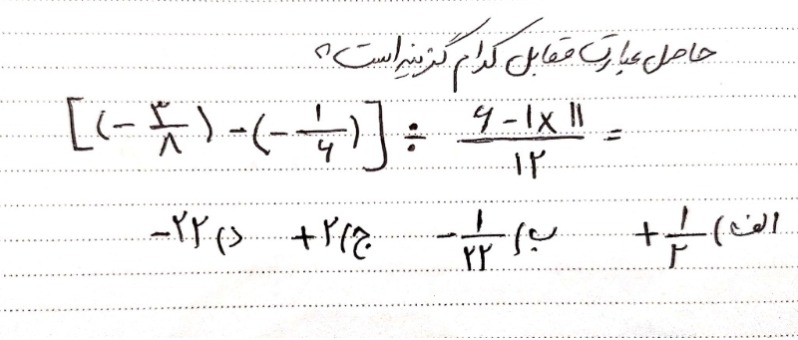 حاصل عبارت مقابل کدام گزینه است؟
[(-۳/۸) - (-۱/۶)] ÷ (۶-۱×۱۱)/۱۲ =
الف) +۱/۲ ب) -۱/۲۲ ج) +۲ د) -۲۲